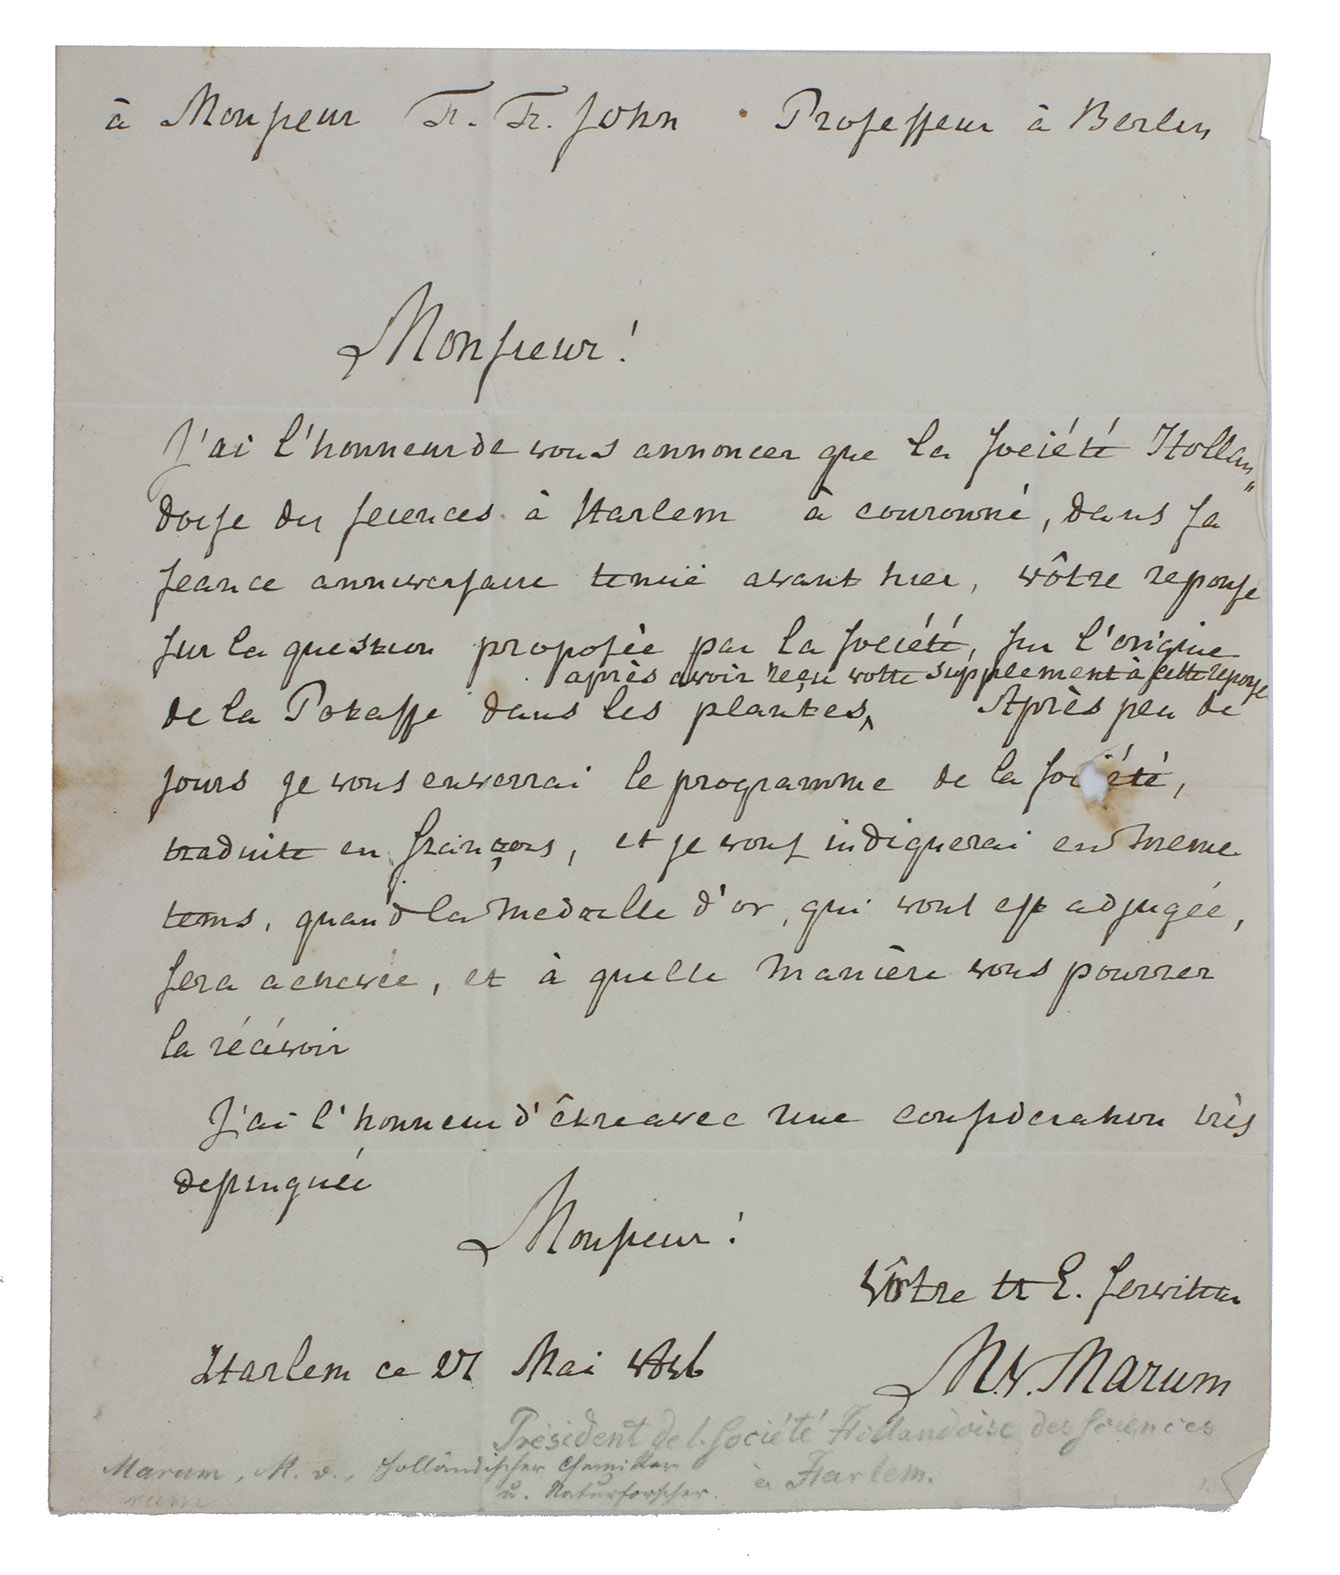 à Monsieur Fr. Fr. John Professeur à Berlin
Monsieur!
J'ai l'honneur de vous annoncer que la Société Hollan„
doise des sciences à Harlem à couronné, dans sa
seance anniversaire tenuë avant hier, vôtre reponse
sur la question proposée par la Société, sur l'origine
après avoir reçu votre supplement à cette reponse
de la Potasse dans les plantes, Après peu de
jours je vous enverrai le programme de la Société,
traduite en françois, et je vous indiquerai en meme
tems, quand la medaille d'or, qui vous est adjugée,
sera achevée, et à quelle manière vous pourrez
la récévoir
J'ai l'honneur d'être avec une consideration très
destinguée
Monsieur!
Vôtre tr E. serviteur
Harlem ce 27 Mai
M. v. Marum
Président de l. Société Hollandoise des Sciences
à Harlem.
Marum, M. v., holländischer Chemiker
u. Naturforscher.